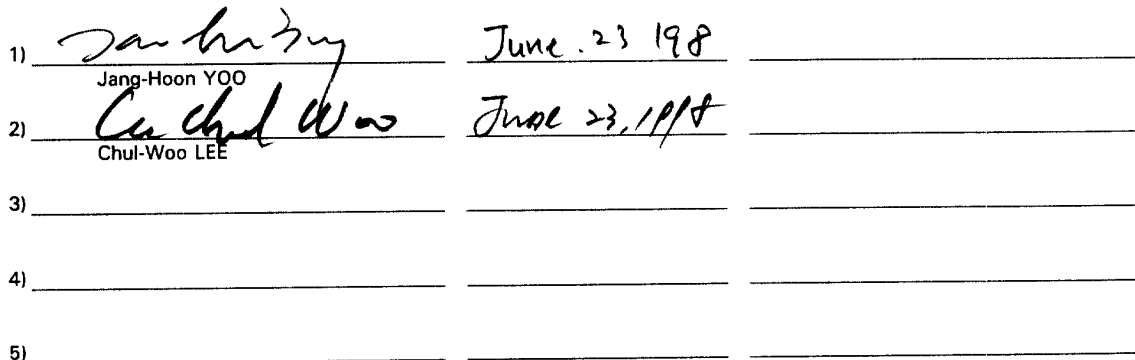 1) June. 23 198
Jang-Hoon YOO
2) Chul Woo June 23, 1998
Chul-Woo LEE
3)
4)
5)